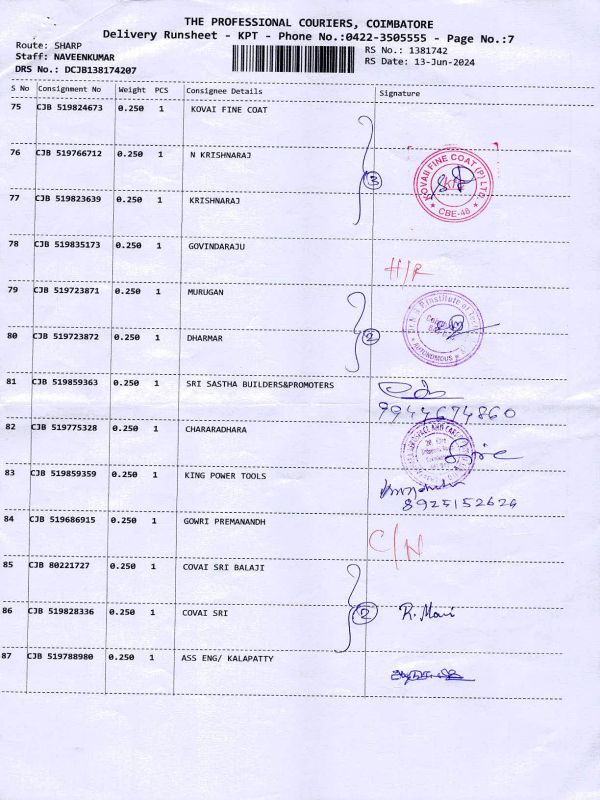 THE PROFESSIONAL COURIERS, COIMBATORE
Delivery Runsheet - KPT - Phone No.:0422-3505555 - Page No.:7
Route: SHARP
RS No.: 1381742
Staff: NAVEENKUMAR
RS Date: 13-Jun-2024
DRS No.: DCJB138174207
S No Consignment No Weight PCS Consignee Details Signature
75 CJB 519824673 0.250 1 KOVAI FINE COAT
76 CJB 519766712 0.250 1 N KRISHNARAJ
KOVAII FINE COAT (P) LTD. * CBE-46 *
3
77 CJB 519823639 0.250 1 KRISHNARAJ
78 CJB 519835173 0.250 1 GOVINDARAJU
H/R
79 CJB 519723871 0.250 1 MURUGAN
Institute of
AUTONOMOUS
2
80 CJB 519723872 0.250 1 DHARMAR
81 CJB 519859363 0.250 1 SRI SASTHA BUILDERS&PROMOTERS
9944674860
82 CJB 519775328 0.250 1 CHARARADHARA
83 CJB 519859359 0.250 1 KING POWER TOOLS
8925152626
84 CJB 519686915 0.250 1 GOWRI PREMANANDH
C/N
85 CJB 80221727 0.250 1 COVAI SRI BALAJI
86 CJB 519828336 0.250 1 COVAI SRI
2
R. Mani
87 CJB 519788980 0.250 1 ASS ENG/ KALAPATTY